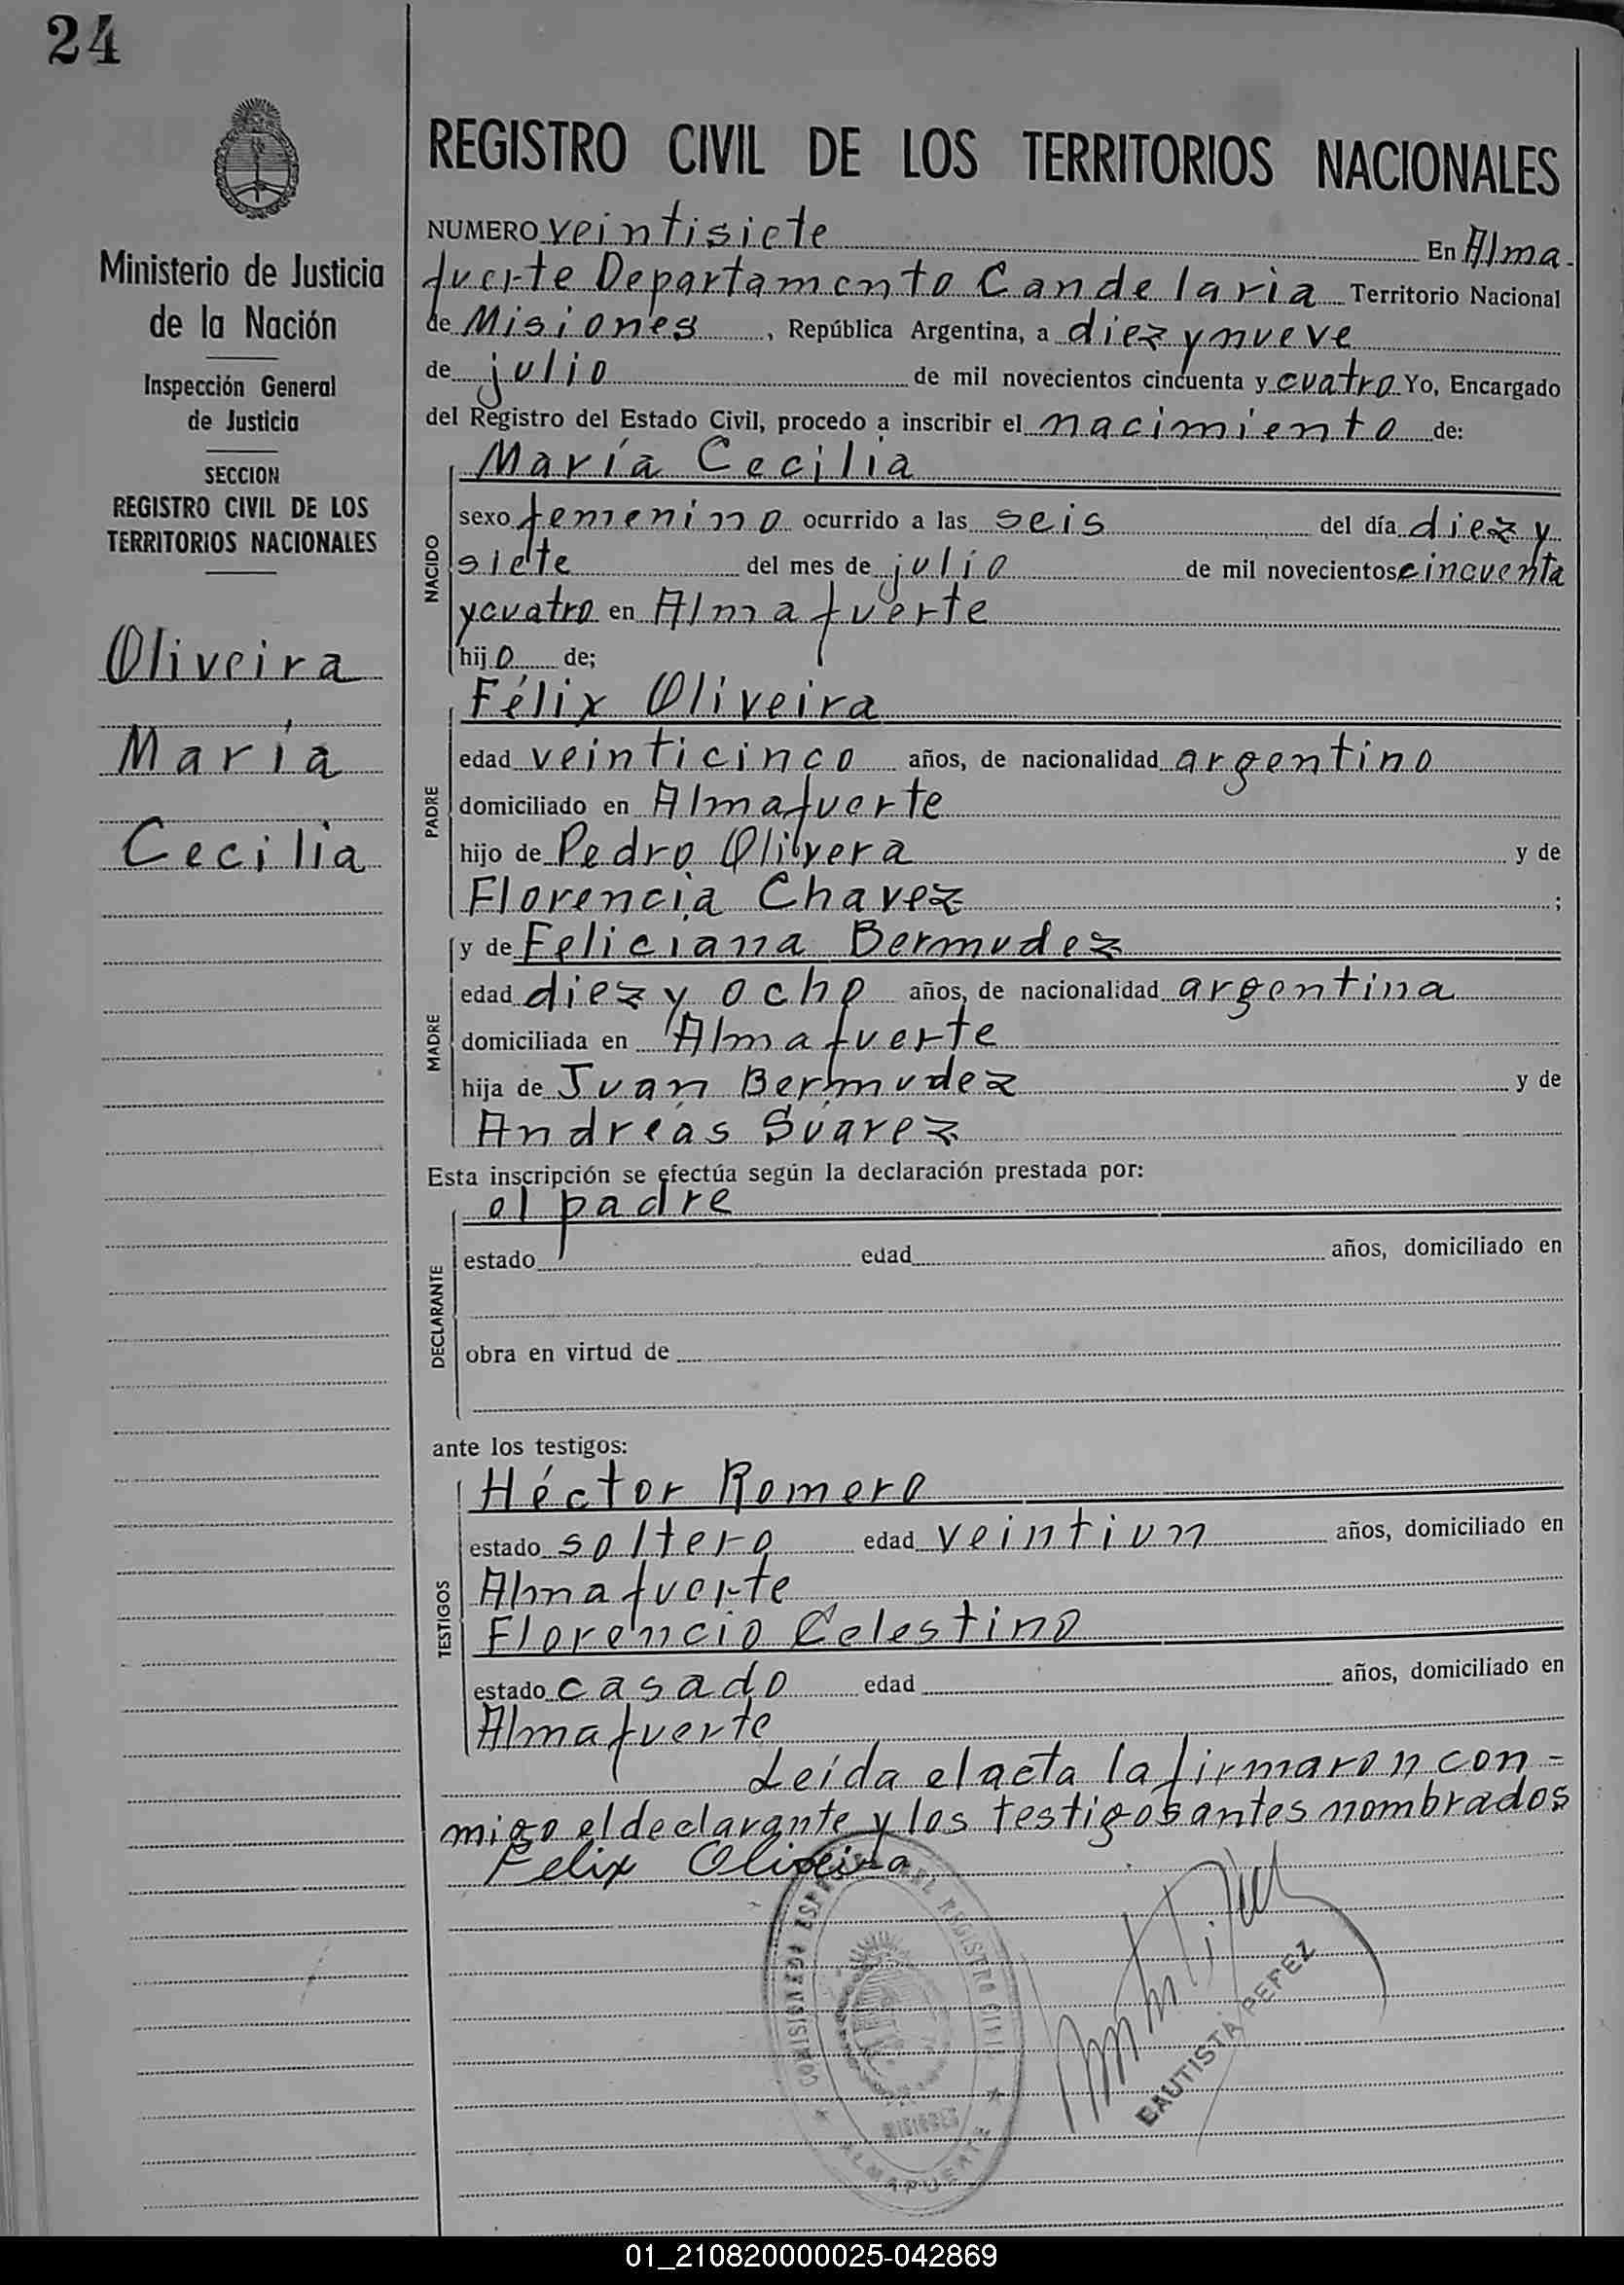 24
Ministerio de Justicia
de la Nación
Inspección General
de Justicia
SECCION
REGISTRO CIVIL DE LOS
TERRITORIOS NACIONALES
Oliveira
María
Cecilia
REGISTRO CIVIL DE LOS TERRITORIOS NACIONALES
NUMERO veintisiete En Alma
fuerte Departamento Candelaria Territorio Nacional
de Misiones, República Argentina, a diez y nueve
de julio de mil novecientos cincuenta y cuatro Yo, Encargado
del Registro del Estado Civil, procedo a inscribir el nacimiento de:
NACIDO
María Cecilia
sexo femenino ocurrido a las seis del día diez y
siete del mes de julio de mil novecientos cincuenta
y cuatro en Almafuerte
hijo de;
PADRE
Félix Oliveira
edad veinticinco años, de nacionalidad argentino
domiciliado en Almafuerte
hijo de Pedro Olivera y de
Florencia Chavez ;
MADRE
y de Feliciana Bermudez
edad diez y ocho años, de nacionalidad argentina
domiciliada en Almafuerte
hija de Juan Bermudez y de
Andreas Suarez
Esta inscripción se efectúa según la declaración prestada por:
DECLARANTE
el padre
estado edad años, domiciliado en
obra en virtud de
ante los testigos:
TESTIGOS
Héctor Romero
estado soltero edad veintiun años, domiciliado en
Almafuerte
Florencio Celestino
estado casado edad años, domiciliado en
Almafuerte
Leída el acta la firmaron con=
migo el declarante y los testigos antes nombrados
Felix Oliveira
REGISTRO CIVIL
MISIONES
ALMAFUERTE
BAUTISTA PEREZ
01_210820000025-042869